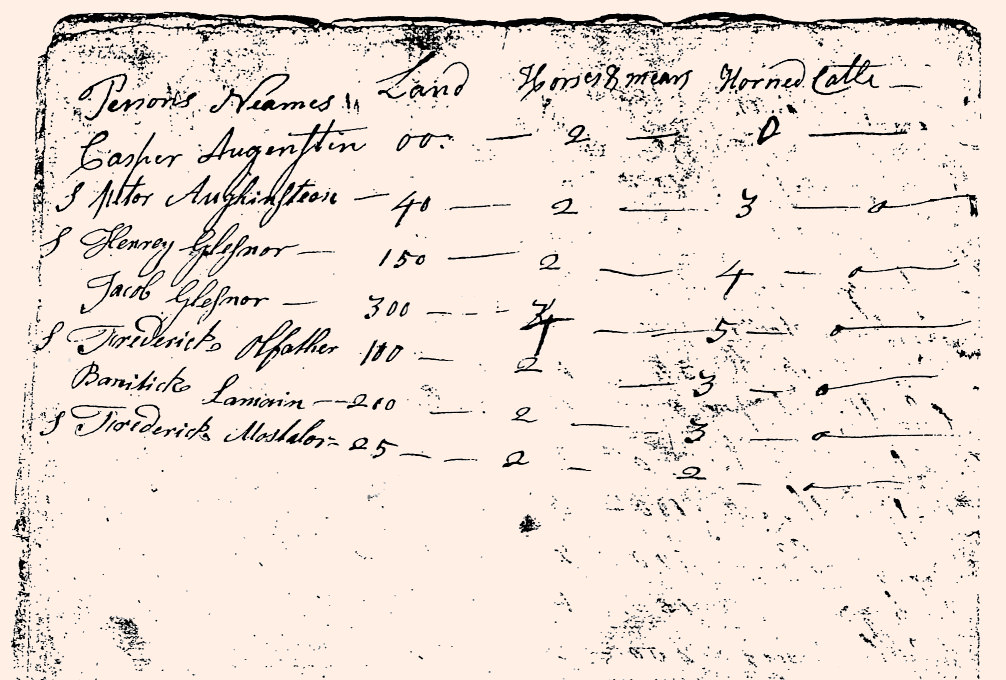 Persons Neames Land Horses & mears Horned Catle
Casper Augenstin 00 2 0
S Petor Aughinsteen 40 2 3 0
S Henrey Glesnor 150 2 4 0
Jacob Glesnor 300 4 5 0
S Frederick Olfather 100 2 3 0
Banitick Lamain 200 2 3 0
S Frederick Mostalor 25 2 2